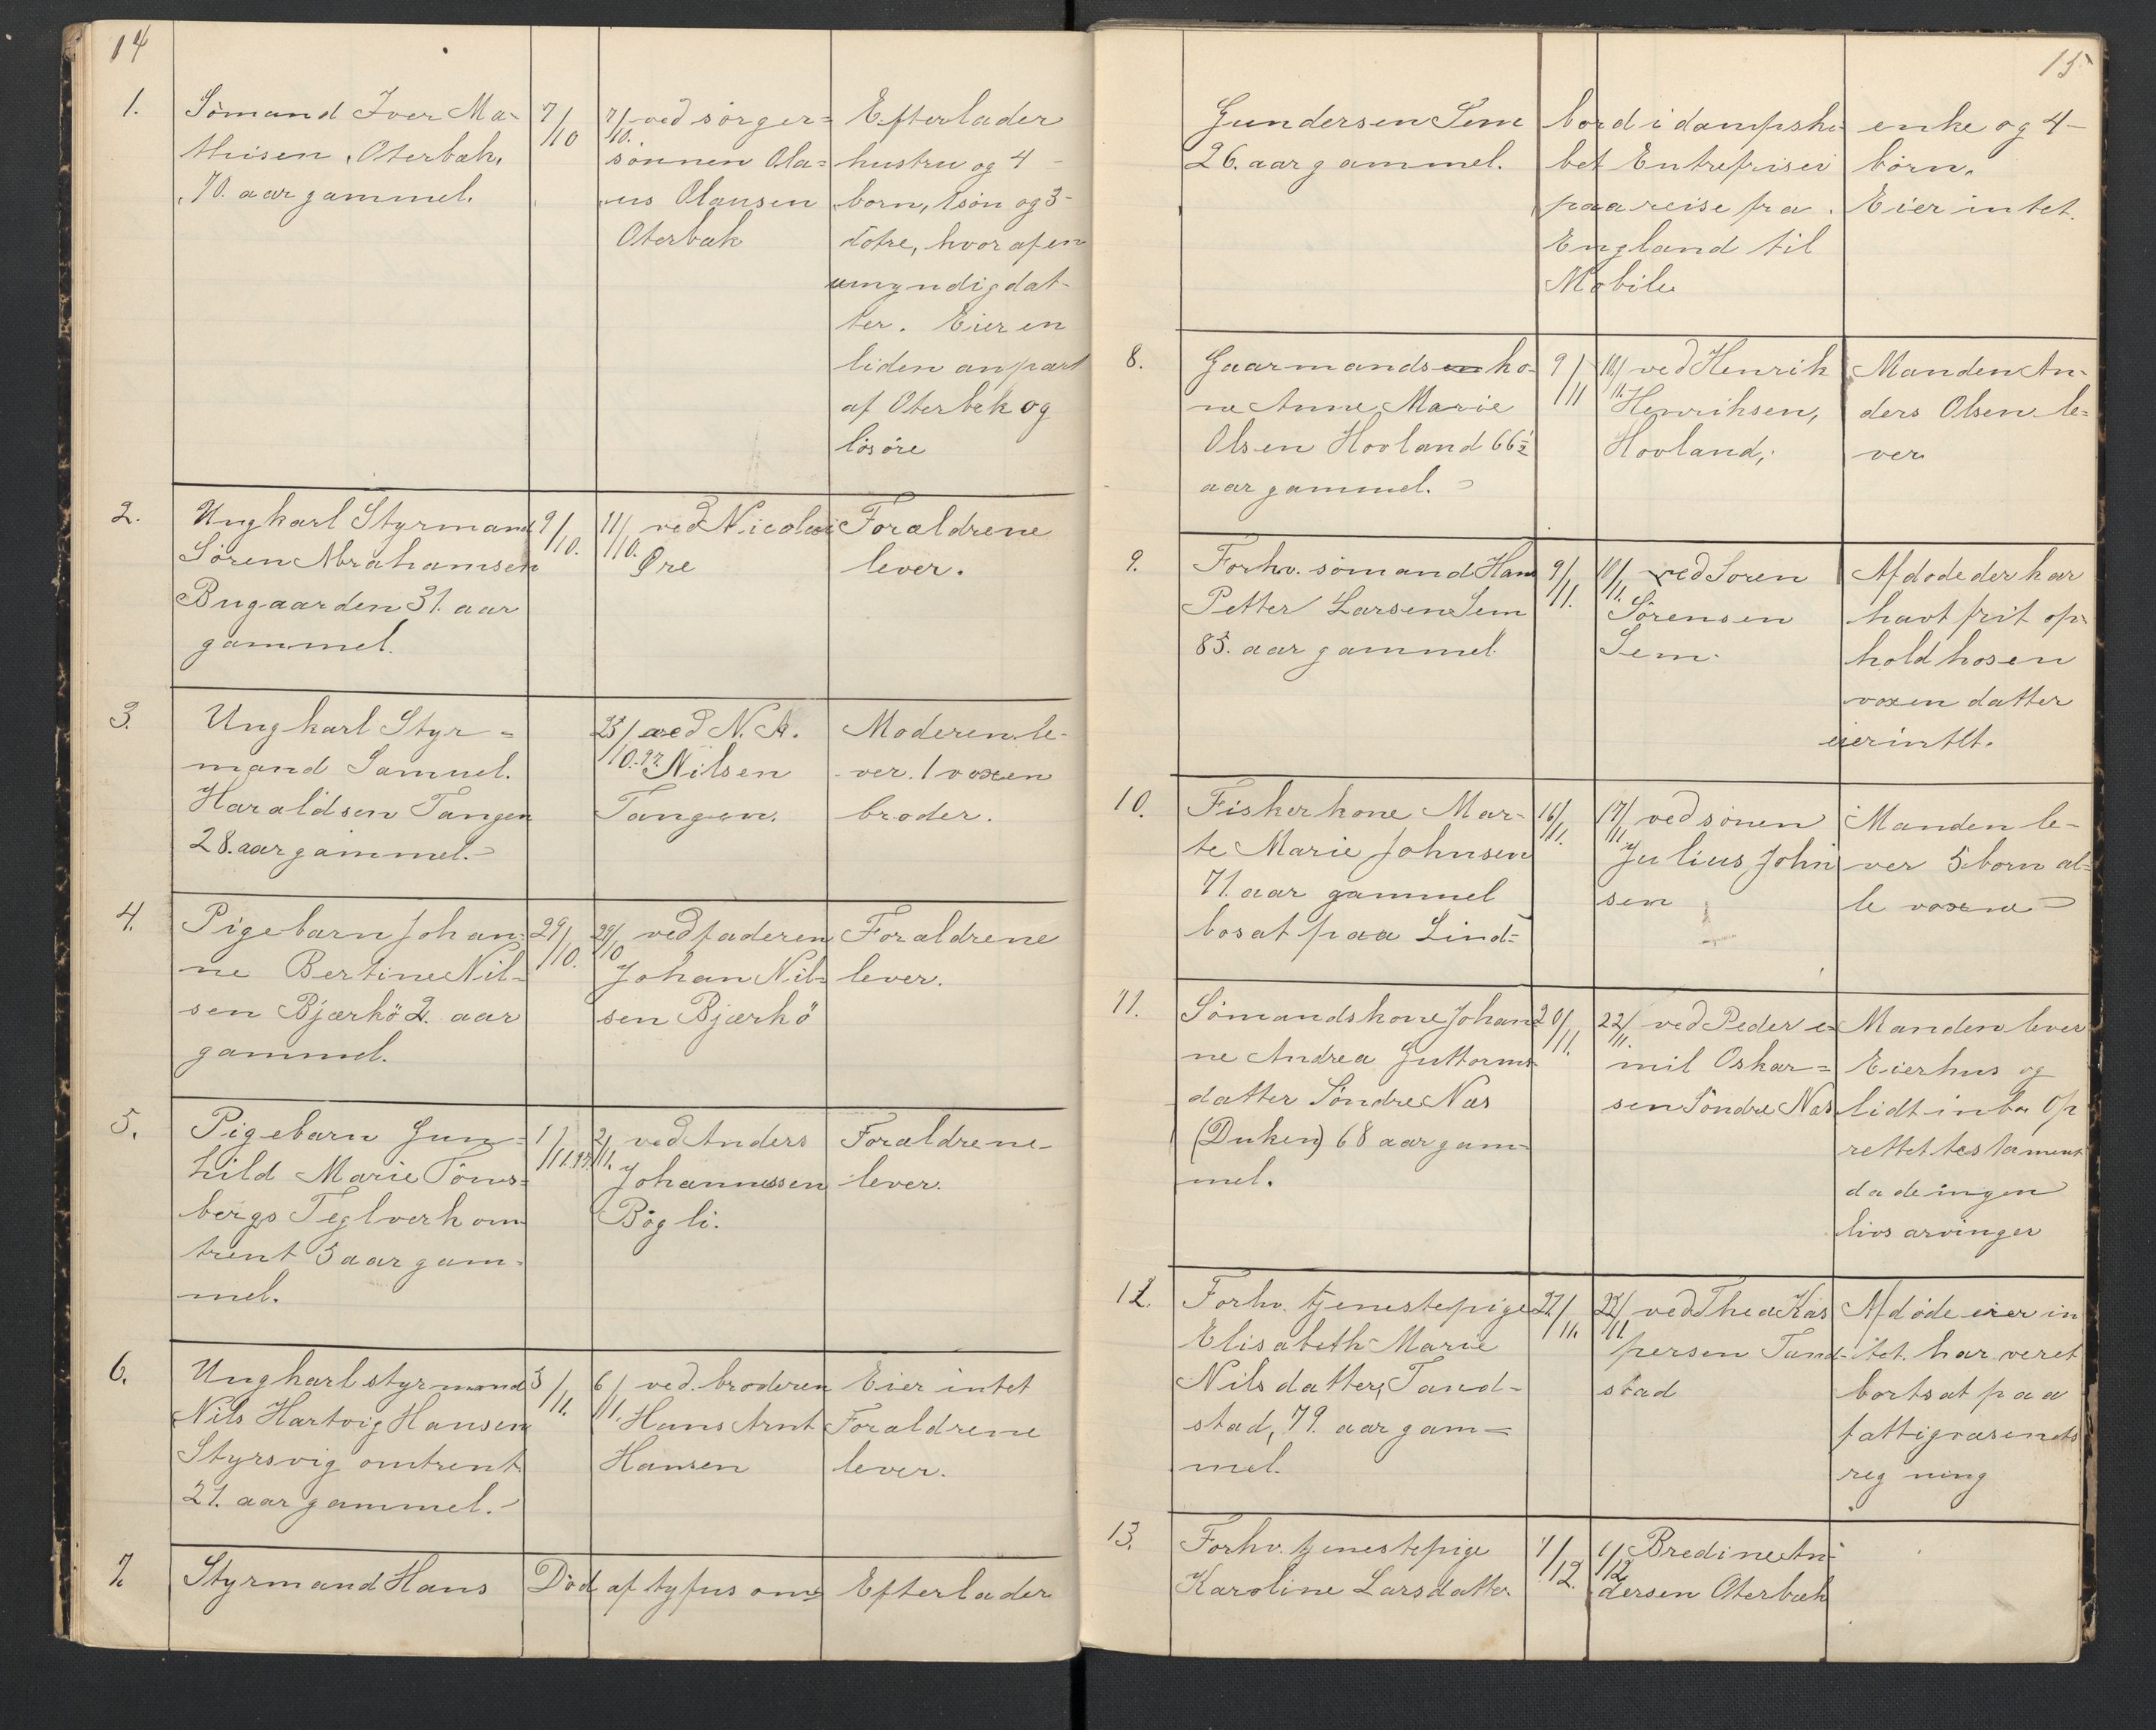 14
1.
Sömand Iver Ma-
thisen, Oterbæk,
70. aar gammel.
7/10
7/10. ved sörger=
sönnen Ola=
us Olausen
Oterbæk
Efterlader
hustru og 4
börn, 1 sön og 3
dötre, hvoraf en
umyndig dat-
ter. Eier en
liden anpart
af Oterbek og
lösöre
2.
Ungkarl Styrmand
Sören Abrahamsen
Bugaarden 31. aar
gammel.
9/10.
11/10. ved Nicolai
Øre
Forældrene
lever.
3.
Ungkarl Styr=
mand Samuel.
Haraldsen Tangen
28. aar gammel.
25/10.97. ved N. A.
Nilsen
Tangen.
Moderen le-
ver. 1 voxen
broder.
4.
Pigebarn Johan-
ne Bertine Nil-
sen Bjærkö 2. aar
gammel.
29/10.
29/10 ved faderen
Johan Nil=
sen Bjærkö
Forældrene
lever.
5.
Pigebarn Gun=
hild Marie Töns=
bergs Teglverk om
trent 5 aar gam=
mel.
1/11.97.
2/11. ved Anders
Johannessen
Bögli.
Forældrene
lever.
6.
Ungkarl styrmand
Nils Hartvig Hansen
Styrsvig omtrent
21. aar gammel.
3/11.
6/11. ved broderen
Hans Arnt
Hansen
Eier intet
Forældrene
lever.
7.
Styrmand Hans
Död af tyfus om=
Efterlader
15
Gundersen Sem
26. aar gammel.
bord i dampski
bet Entreprisei
paa reise fra
England til
Mobile
enke og 4
börn.
Eier intet.
8.
Gaarmands en ko-
ne Anne Marie
Olsen Hovland 66½
aar gammel.
9/11
10/11. ved Henrik
Henriksen,
Hovland,
Manden An-
ders Olsen le=
ver
9.
Forhv. sömand Hans
Petter Larsen Sem
85. aar gammel.
9/11.
10/11. ved Sören
Sörensen
Sem.
Afdöde der har
havt frit op
hold hos en
voxen datter
eier intet.
10.
Fiskerkone Mar-
te Marie Johnsen
71. aar gammel
bosat paa Lind=
16/11.
17/11 ved sönen
Julius John
sen
Manden le-
ver 5 börn al=
le voxne
11.
Sömandskone Johan-
ne Andrea Guttorms-
datter Söndre Næs
(Duken) 68 aar gam-
mel.
20/11.
22/11. ved Peder e-
mil Oskar=
sen Söndre Næs
Manden lever
Eier hus og
lidt inbo Op
rettet testament
da de ingen
livsarvinger
12.
Forhv. tjenestepige
Elisabeth Marie
Nilsdatter, Tand-
stad, 79. aar gam=
mel.
27/11.
27/11. ved Thea Kas
persen Tand-
stad
Afdöde eier in
tet. har veret
bortsat paa
fattigvæsenets
regning
13.
Forhv. tjenestepige
Karoline Larsdatter
1/12.
1/12 Bredine An-
dersen Oterbæk